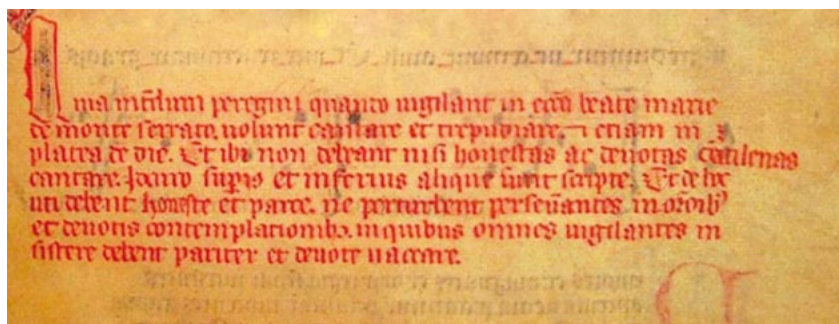 Quia interdum peregrini quando vigilant in ecc̄a beate marie
de monte serrato, volunt cantare et trepudiare, ⁊ etiam in
platea de die. Et ibi non debeant nisi honestas ac devotas cātilenas
cantare. Idcirco superius et inferius alique sunt scripte. Et de hoc
uti debent honeste et parce. ne perturbent perseverantes in or̄oib⁹
et devotis contemplationibꝫ. in quibus omnes vigilantes in
sistere debent pariter et devote vaccare.